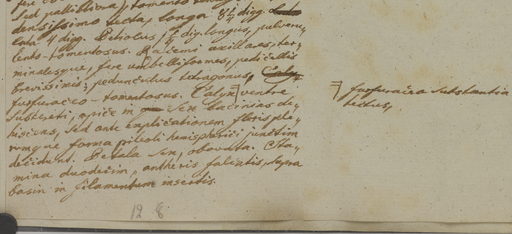 sed pallidiore, tomento
densissimo tecta, longa 8½ digg.
lata 4 digg. Petiolus ½ dig. longus, pulveru-
lento-tomentosus. Racemi axillares, ter-
minalesque, fere umbelliformes, pedicellis
brevissimis; pedunculus tetragonus,
furfuraceo-tomentosus. Calyx ventre
subtereti, apice in sex lacinias de-
hiscens, sed ante explicationem floris ple-
rumque forma pileoli hemisphaerici junctim
decidens. Petala sex, obovata. Sta-
mina duodecim, antheris falcatis, supra
basin in filamentum insertis.
furfuracea substantia
tectus,
12 8